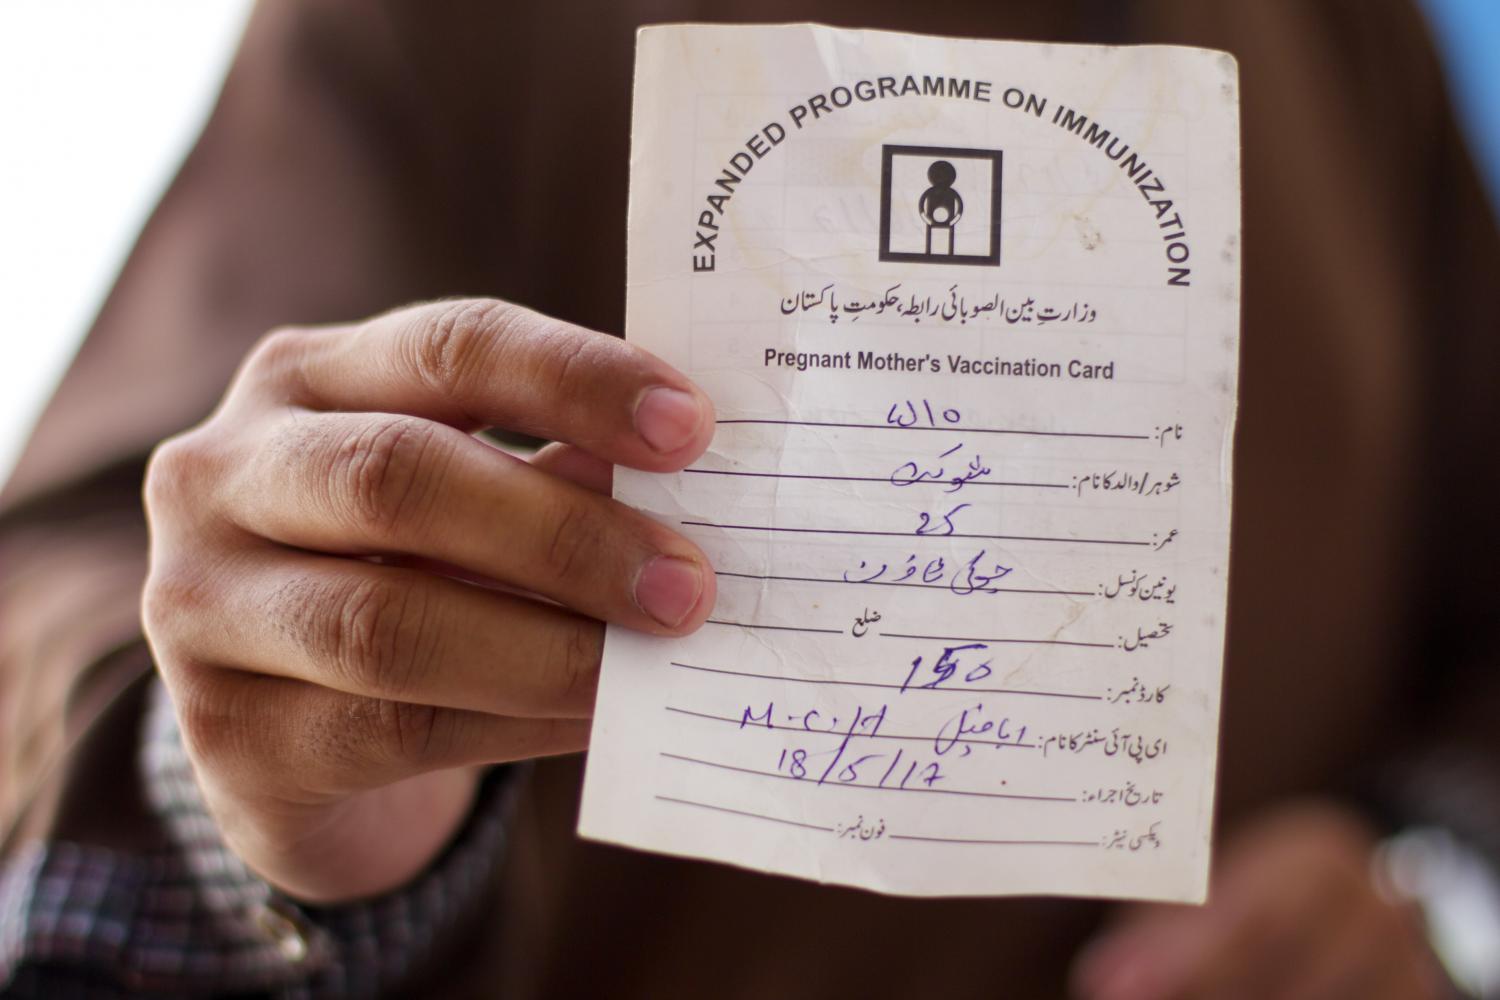 EXPANDED PROGRAMME ON IMMUNIZATION
وزارتِ بین الصوبائی رابطہ، حکومتِ پاکستان
Pregnant Mother's Vaccination Card
نام:
شوہر/والد کا نام: شوکت
عمر: 25
یونین کونسل: ٹاؤن
تحصیل: ضلع
کارڈ نمبر:
ای پی آئی سنٹر کا نام: M.C.H
تاریخ اجراء: 18/5/17
ویکسی نیٹر: فون نمبر: